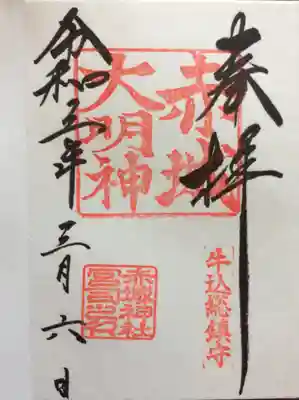 奉拝
赤城
大明神
牛込総鎮守
赤城神社
宮司之印
令和五年三月六日